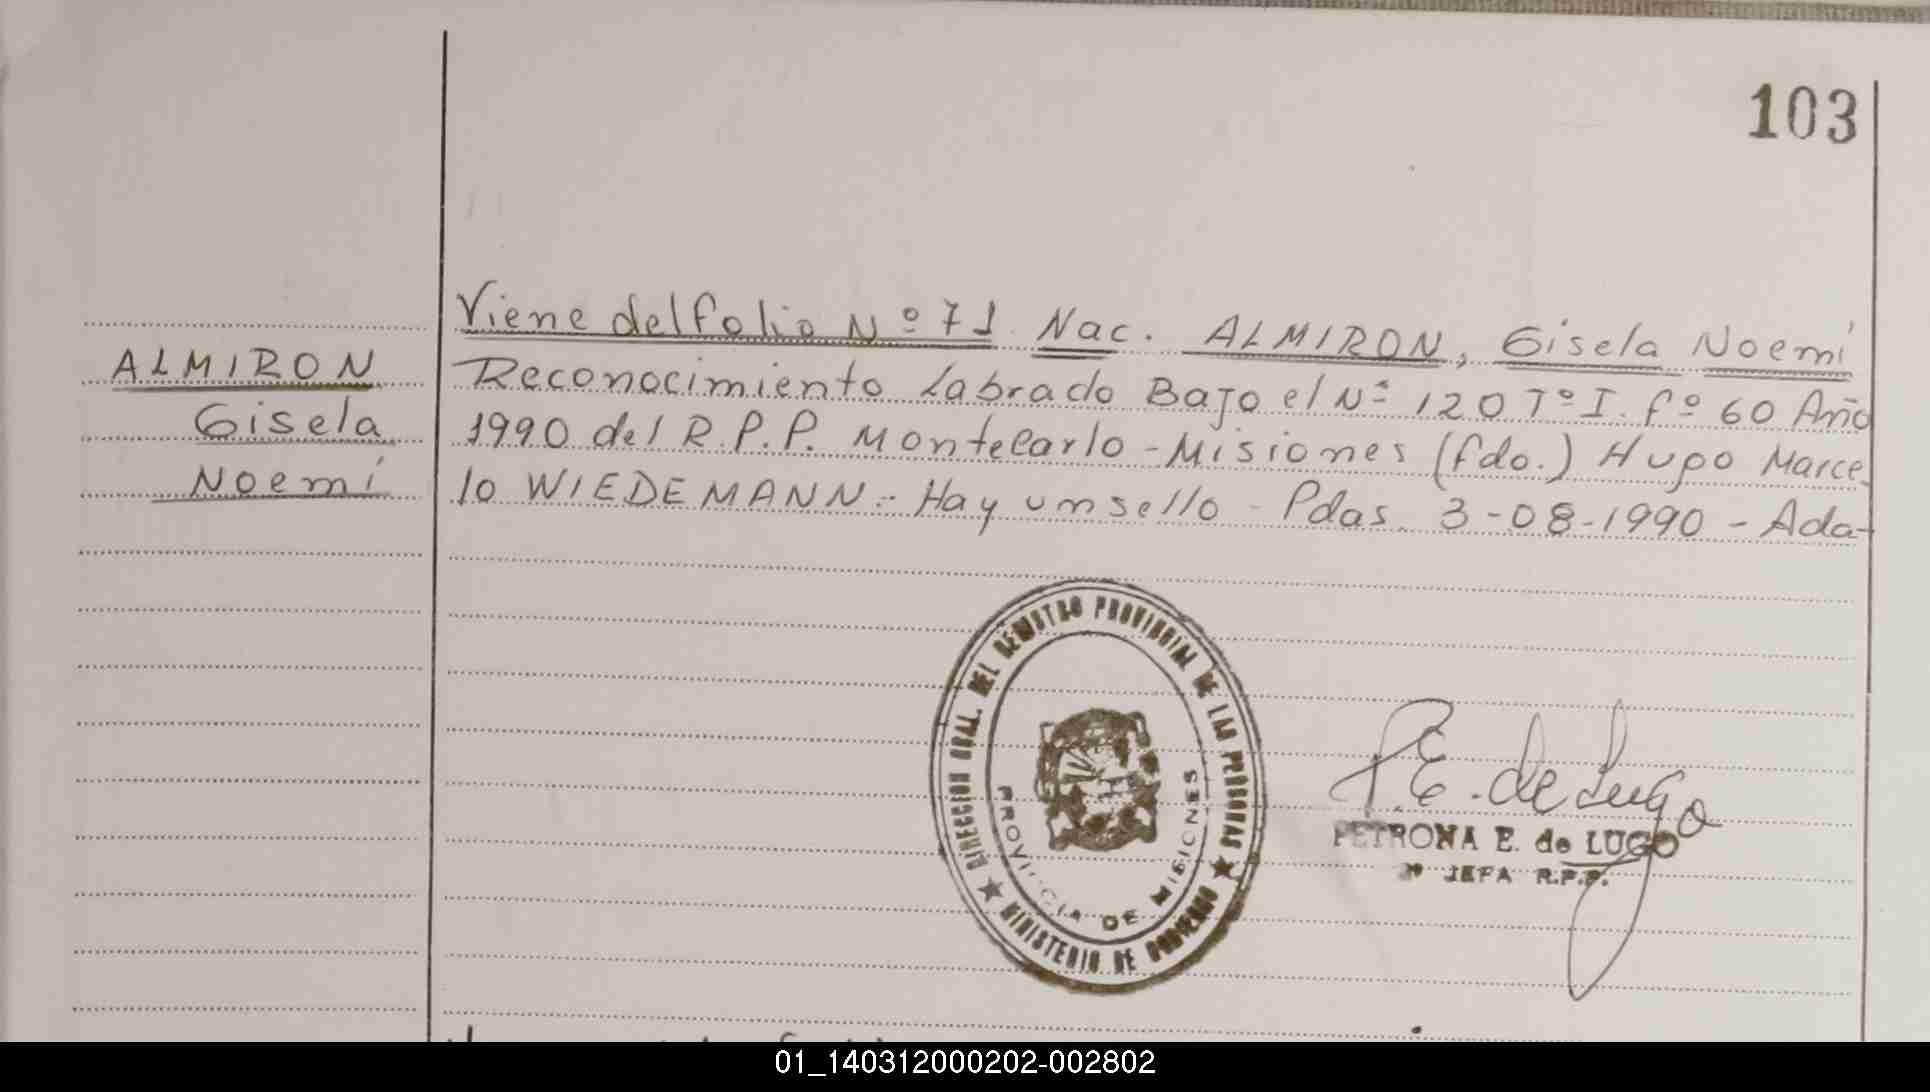 103
Viene del folio Nº 71 Nac. ALMIRON, Gisela Noemí
ALMIRON
Gisela
Noemí
Reconocimiento Labrado Bajo el Nº 120 Tº I. fº 60 Año
1990 del R.P.P. Montecarlo - Misiones (fdo.) Hugo Marce-
lo WIEDEMANN.- Hay un sello - Pdas. 3-08-1990 - Ada-
DIRECCION GRAL. DEL REGISTRO PROVINCIAL DE LAS PERSONAS
MINISTERIO DE GOBIERNO
PROVINCIA DE MISIONES
P.E. de Lugo
PETRONA E. de LUGO
JEFA R.P.P.
01_140312000202-002802